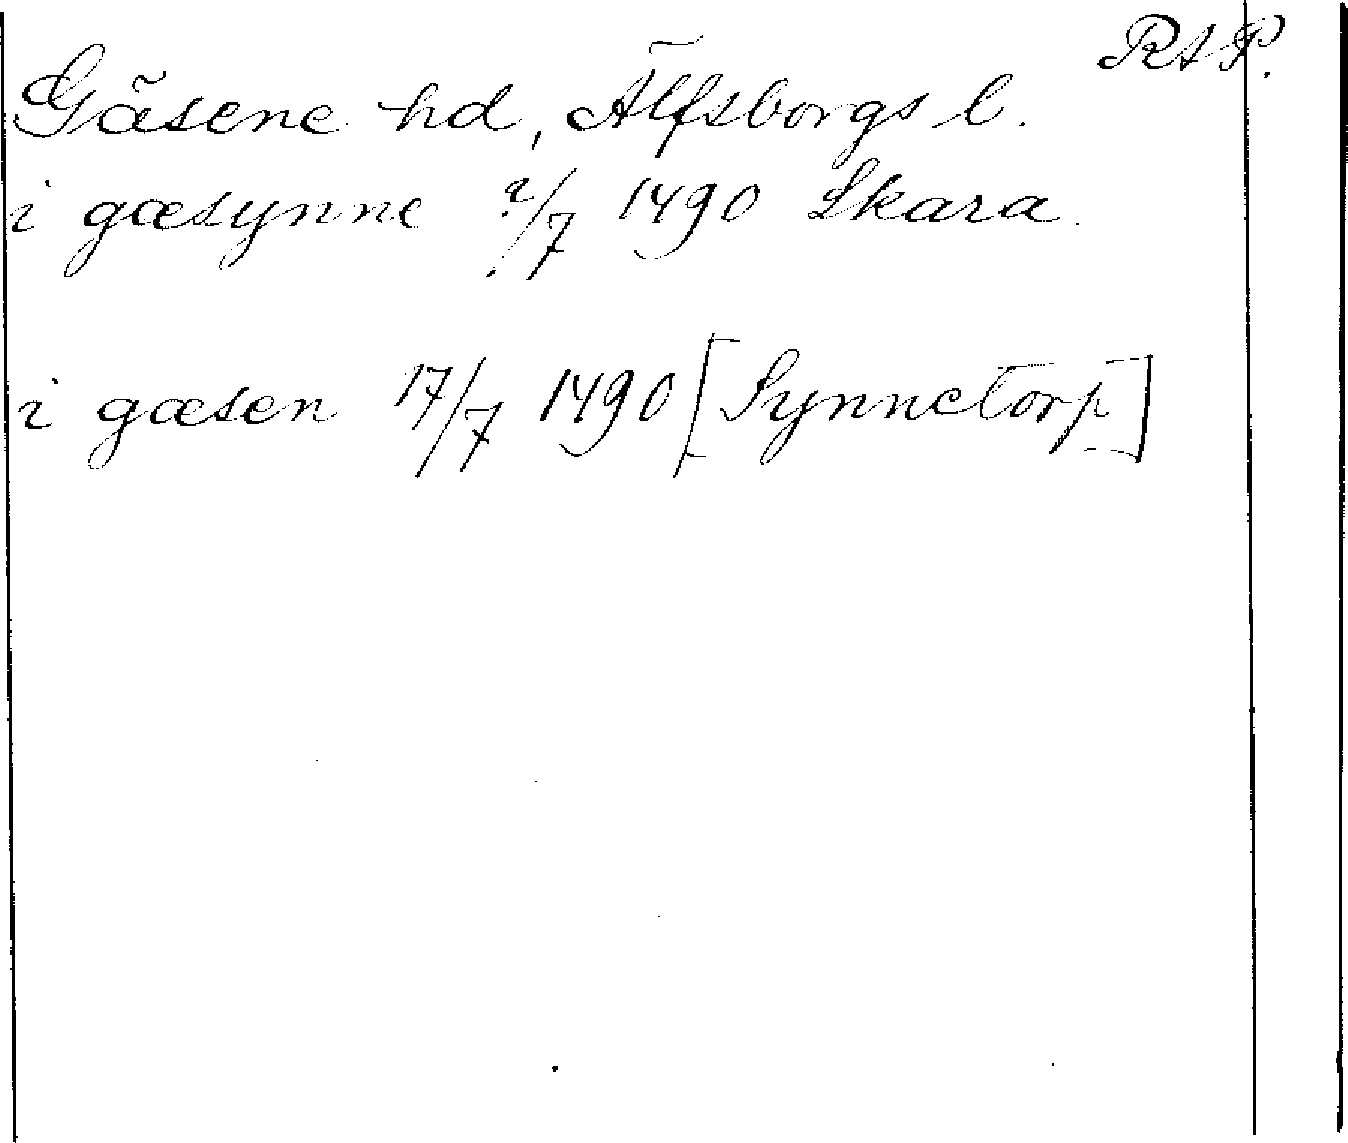 RAP.
Gäsene hd, Älfsborgs l.
i gæsynne ?/7 1490 Skara.
i gæsen 17/7 1490 [Synnetorp]